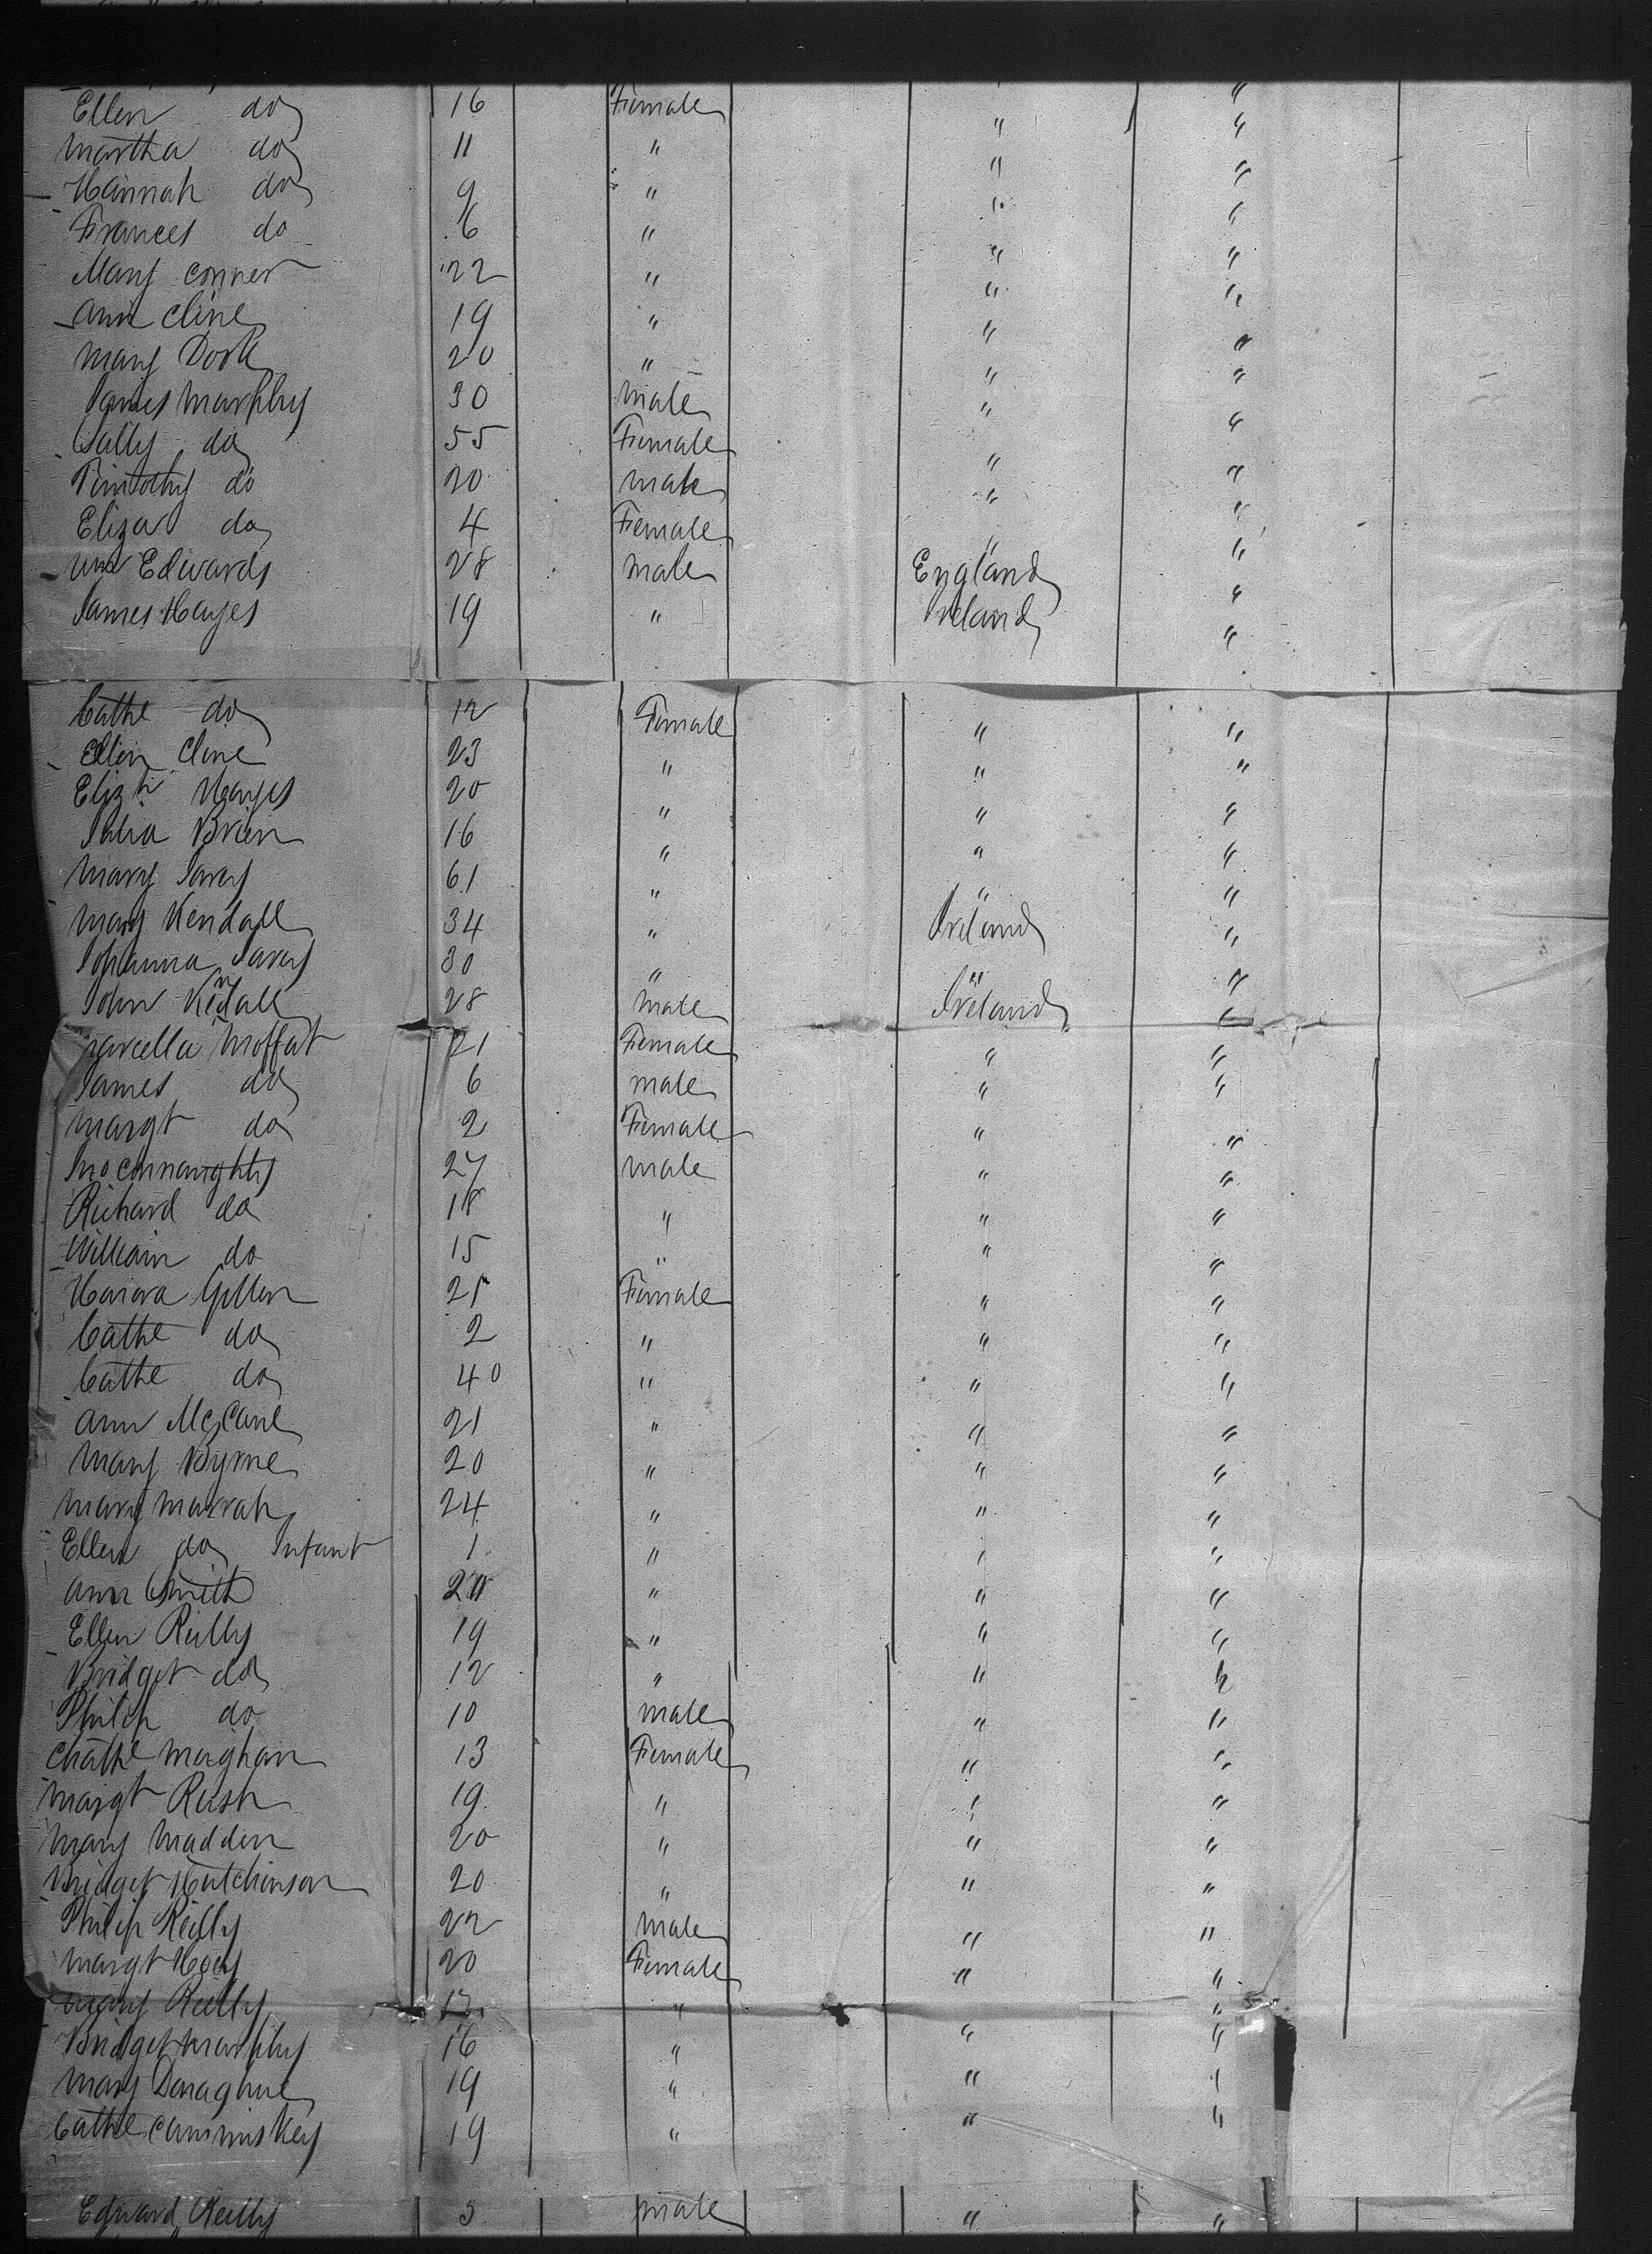 Ellen do 16 Female " "
Martha do 11 " " "
Hannah do 9 " " "
Frances do 6 " " "
Mary Conner 22 " " "
Ann Cline 19 " " "
Mary Dork 20 " " "
James Murphy 30 male " "
Sally do 55 Female " "
Timothy do 20 male " "
Eliza do 4 Female " "
Wm Edwards 28 male England "
James Hayes 19 " Ireland "
Cathe do 12 Female " "
Ellen Cline 23 " " "
Elizth Hayes 20 " " "
Julia Brien 16 " " "
Mary Savey 61 " " "
Mary Kendall 34 " Ireland "
Johanna Savey 30 " " "
John Kendall 28 male Ireland "
Marcella Moffat 21 Female " "
James do 6 male " "
Margt do 2 Female " "
Jno Connaughty 27 male " "
Richard do 18 " " "
William do 15 " " "
Honora 25 Female " "
Cathe do 2 " " "
Cathe do 40 " " "
Ann McCane 21 " " "
Mary Byrne 20 " " "
Mary Marrah 24 " " "
Ellen do Infant 1 " " "
Ann Smith " " "
Ellen Reilly 19 " " "
Bridget do 12 " " "
Philip do 10 male " "
Chathe Maighan 13 Female " "
Margt Rush 19 " " "
Mary Madden 20 " " "
Bridget Hutchinson 20 " " "
Philip Reilly 22 male " "
Margt Hoey 20 Female " "
Mary Reilly " "
Bridget Murphy 16 " " "
Mary Donaghue 19 " " "
Cathe Cummiskey 19 " " "
Edward Reilly 5 male " "